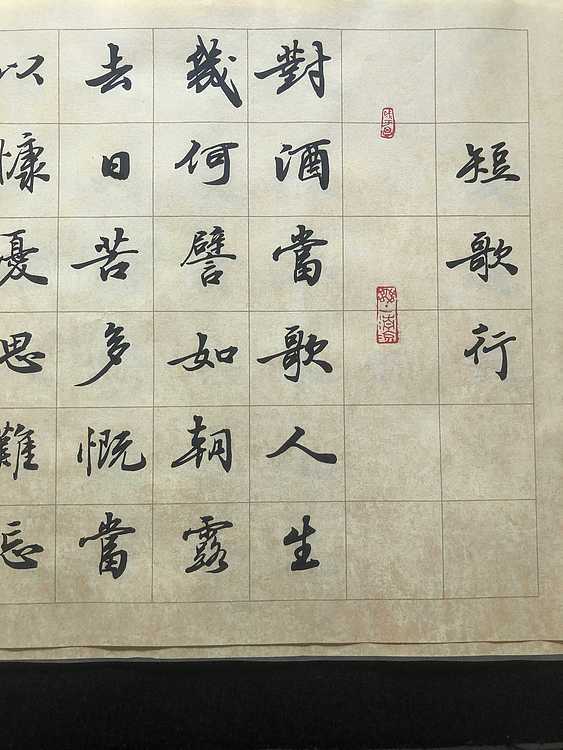 短歌行
對酒當歌人生
幾何譬如朝露
去日苦多慨當
以慷憂思難忘